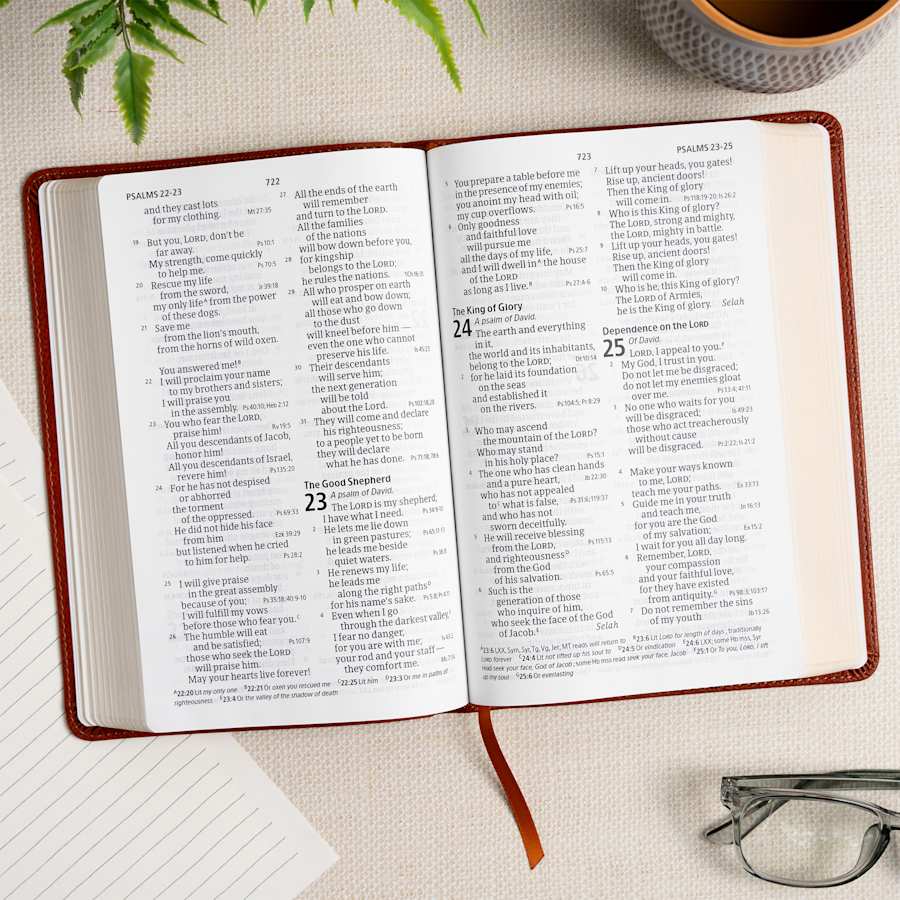 PSALMS 22-23
722
and they cast lots
for my clothing. Mt 27:35
19 But you, LORD, don't be
far away. Ps 10:1
My strength, come quickly
to help me. Ps 70:5
20 Rescue my life
from the sword, Jr 39:18
my only life^A from the power
of these dogs.
21 Save me
from the lion's mouth,
from the horns of wild oxen.
You answered me!^B
22 I will proclaim your name
to my brothers and sisters;
I will praise you
in the assembly. Ps 40:10; Heb 2:12
23 You who fear the LORD,
praise him! Rv 19:5
All you descendants of Jacob,
honor him!
All you descendants of Israel,
revere him! Ps 135:20
24 For he has not despised
or abhorred
the torment
of the oppressed. Ps 69:33
He did not hide his face
from him Ezk 39:29
but listened when he cried
to him for help. Ps 28:2
25 I will give praise
in the great assembly
because of you; Ps 35:18; 40:9-10
I will fulfill my vows
before those who fear you.^C
26 The humble will eat
and be satisfied; Ps 107:9
those who seek the LORD
will praise him.
May your hearts live forever!
27 All the ends of the earth
will remember
and turn to the LORD.
All the families
of the nations
will bow down before you,
28 for kingship
belongs to the LORD;
he rules the nations.
29 All who prosper on earth
will eat and bow down;
all those who go down
to the dust
will kneel before him —
even the one who cannot
preserve his life. Is 45:23
30 Their descendants
will serve him;
the next generation
will be told
about the Lord. Ps 102:18,28
31 They will come and declare
his righteousness;
to a people yet to be born
they will declare
what he has done. Ps 71:18; 78:6
The Good Shepherd
23 A psalm of David.
The LORD is my shepherd;
I have what I need. Ps 34:9-10
2 He lets me lie down
in green pastures; Ps 65:11-13
he leads me beside
quiet waters.
3 He renews my life;
he leads me
along the right paths^D
for his name's sake. Ps 5:8; Pr 4:11
4 Even when I go
through the darkest valley,^E
I fear no danger,
for you are with me; Is 43:2
your rod and your staff —
they comfort me. Mc 7:14
^A22:20 Lit my only one ^B22:21 Or oxen you rescued me ^C22:25 Lit him ^D23:3 Or me in paths of
righteousness ^E23:4 Or the valley of the shadow of death
723
PSALMS 23-25
5 You prepare a table before me
in the presence of my enemies;
you anoint my head with oil;
my cup overflows. Ps 16:5
6 Only goodness
and faithful love
will pursue me
all the days of my life, Ps 25:7
and I will dwell in^A the house
of the LORD
as long as I live.^B Ps 27:4-6
The King of Glory
24 A psalm of David.
The earth and everything
in it,
the world and its inhabitants,
belong to the LORD; Dt 10:14
2 for he laid its foundation
on the seas
and established it
on the rivers. Ps 104:5; Pr 8:29
3 Who may ascend
the mountain of the LORD?
Who may stand
in his holy place? Ps 15:1
4 The one who has clean hands
and a pure heart, Jb 22:30
who has not appealed
to^C what is false, Ps 31:6; 119:37
and who has not
sworn deceitfully.
5 He will receive blessing
from the LORD, Ps 115:13
and righteousness^D
from the God
of his salvation. Ps 65:5
6 Such is the
generation of those
who inquire of him,
who seek the face of the God
of Jacob.^E Selah
7 Lift up your heads, you gates!
Rise up, ancient doors!
Then the King of glory
will come in. Ps 118:19-20; Is 26:2
8 Who is this King of glory?
The LORD, strong and mighty,
the LORD, mighty in battle.
9 Lift up your heads, you gates!
Rise up, ancient doors!
Then the King of glory
will come in.
10 Who is he, this King of glory?
The LORD of Armies,
he is the King of glory. Selah
Dependence on the LORD
25 Of David.
LORD, I appeal to you.^F
2 My God, I trust in you.
Do not let me be disgraced;
do not let my enemies gloat
over me. Ps 13:4; 41:11
3 No one who waits for you
will be disgraced; Is 49:23
those who act treacherously
without cause
will be disgraced. Ps 2:22; Is 21:2
4 Make your ways known
to me, LORD;
teach me your paths. Ex 33:13
5 Guide me in your truth
and teach me, Jn 16:13
for you are the God
of my salvation; Ex 15:2
I wait for you all day long.
6 Remember, LORD,
your compassion
and your faithful love,
for they have existed
from antiquity.^G Ps 98:3; 103:17
7 Do not remember the sins
of my youth Jb 13:26
^A23:6 LXX, Sym, Syr, Tg, Vg, Jer; MT reads will return to ^B23:6 Lit LORD for length of days; traditionally
LORD forever ^C24:4 Lit not lifted up his soul to ^D24:5 Or vindication ^E24:6 LXX; some Hb mss, Syr
read seek your face, God of Jacob; some Hb mss read seek your face, Jacob ^F25:1 Or To you, LORD, I lift
up my soul ^G25:6 Or everlasting